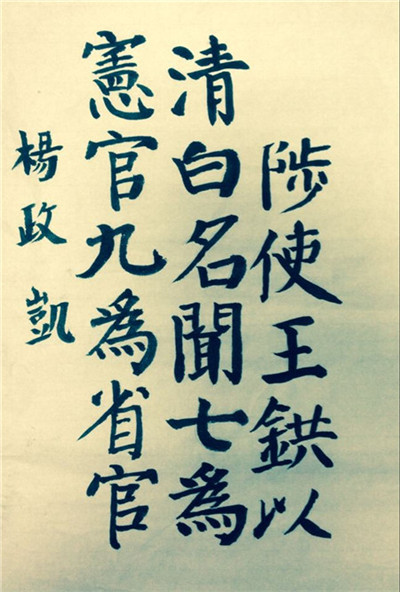 陟使王鉷以
清白名聞七為
憲官九為省官
楊政凱